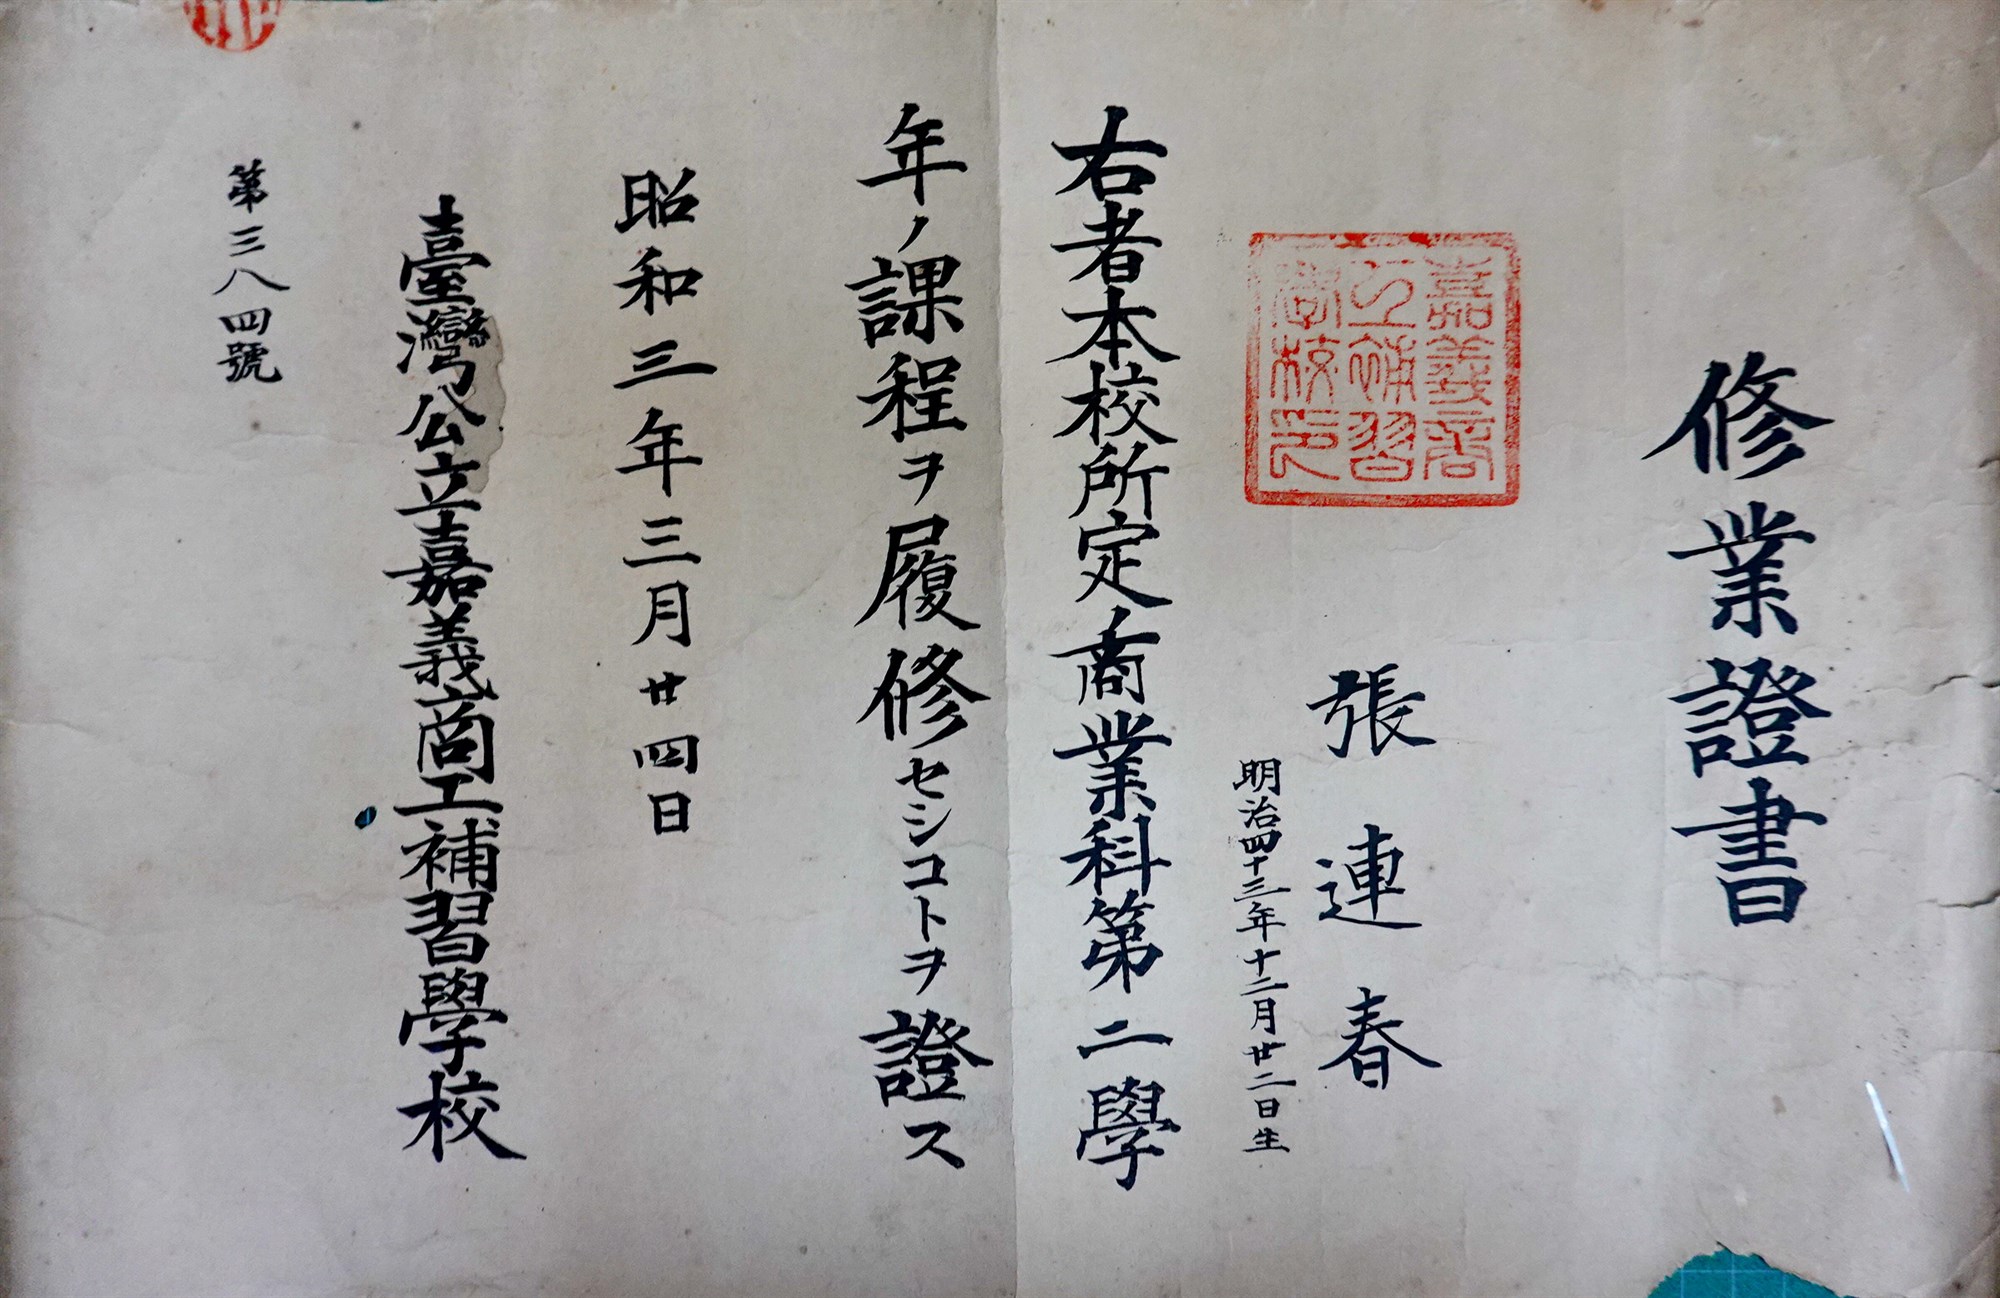 修業證書
張連春
明治四十三年十二月廿二日生
嘉義商
工補習
學校印
右者本校所定ノ商業科第二學
年ノ課程ヲ履修セシコトヲ證ス
昭和三年三月廿四日
臺灣公立嘉義商工補習學校
第三八四號